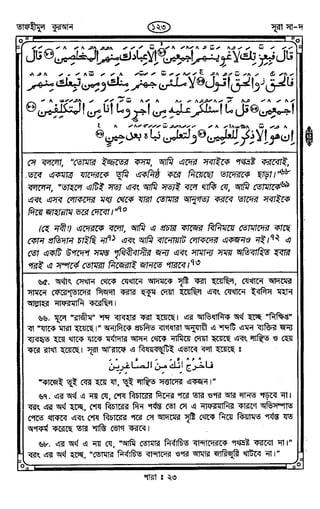 তাফহীমুল কুরআন
১২৩
সূরা সা-দ
قَالَ فَبِعِزَّتِكَ لَأُغْوِيَنَّهُمْ أَجْمَعِينَ ۝ إِلَّا عِبَادَكَ مِنْهُمُ الْمُخْلَصِينَ ۝ قَالَ
فَالْحَقُّ وَالْحَقَّ أَقُولُ ۝ لَأَمْلَئَنَّ جَهَنَّمَ مِنْكَ وَمِمَّنْ تَبِعَكَ مِنْهُمْ
أَجْمَعِينَ ۝ قُلْ مَا أَسْئَلُكُمْ عَلَيْهِ مِنْ أَجْرٍ وَمَا أَنَا مِنَ الْمُتَكَلِّفِينَ ۝
إِنْ هُوَ إِلَّا ذِكْرٌ لِلْعَالَمِينَ ۝ وَلَتَعْلَمُنَّ نَبَأَهُ بَعْدَ حِينٍ ۝
সে বললো, "তোমার ইজ্জতের কসম, আমি এদের সবাইকে পথভ্রষ্ট করবোই,
তবে একমাত্র যাদেরকে তুমি একনিষ্ঠ করে নিয়েছো তাদেরকে ছাড়া।"৬৮
বললেন, "তাহলে এটিই সত্য এবং আমি সত্যই বলে থাকি যে, আমি তোমাকে৬৯
এবং এসব লোকদের মধ্য থেকে যারা তোমার আনুগত্য করবে তাদের সবাইকে
দিয়ে জাহান্নাম ভরে দেবো।"৭০
(হে নবী!) এদেরকে বলো, আমি এ প্রচার কাজের বিনিময়ে তোমাদের কাছে
কোন প্রতিদান চাইছি না৭১ এবং আমি বানোয়াট লোকদের একজনও নই।৭২ এ
তো একটি উপদেশ সমস্ত পৃথিবীবাসীর জন্য এবং সামান্য সময় অতিবাহিত হবার
পরই এ সম্পর্কে তোমরা নিজেরাই জানতে পারবে।৭৩
৬৫. অর্থাৎ যেখান থেকে যেখানে আদমকে সৃষ্টি করা হয়েছিল, যেখানে আদমের
সামনে ফেরেশতাদের সিজদা করার হুকুম দেয়া হয়েছিল এবং যেখানে ইবলিস মহান
আল্লাহর নাফরমানি করেছিল।
৬৬. মূলে "রাজীম" শব্দ ব্যবহার করা হয়েছে। এর আভিধানিক অর্থ হচ্ছে "নিক্ষিপ্ত"
বা "যাকে মারা হয়েছে।" অন্যদিকে প্রচলিত বাগধারা অনুযায়ী এ শব্দটি এমন ব্যক্তির জন্য
ব্যবহৃত হয় যাকে যাকে মর্যাদার আসন থেকে নামিয়ে দেয়া হয়েছে এবং লাঞ্ছিত ও হেয়
করে রাখা হয়েছে। সূরা আ'রাফে এ বিষয়বস্তুটিই এভাবে বলা হয়েছে ঃ
فَاخْرُجْ إِنَّكَ مِنَ الصَّاغِرِينَ
"কাজেই তুই বের হয়ে যা, তুই লাঞ্ছিত সত্তাদের একজন।"
৬৭. এর অর্থ এ নয় যে, শেষ বিচারের দিনের পরে তার ওপর আর লানত পড়বে না।
বরং এর অর্থ হচ্ছে, শেষ বিচারের দিন পর্যন্ত তো সে এ নাফরমানির কারণে অভিসম্পাত
পেতে থাকবে এবং শেষ বিচারের পরে সে আদমের সৃষ্টি থেকে নিয়ে কিয়ামত পর্যন্ত যত
অপকর্ম করেছে তার শাস্তি ভোগ করবে।
৬৮. এর অর্থ এ নয় যে, "আমি তোমার নির্বাচিত বান্দাদেরকে পথভ্রষ্ট করবো না।"
বরং এর অর্থ হচ্ছে, "তোমার নির্বাচিত বান্দাদের ওপর আমার জারিজুরি খাটবে না।"
পারা ঃ ২৩